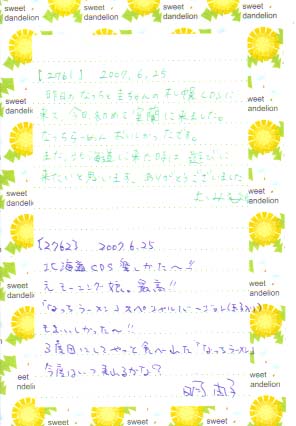 sweet dandelion
sweet dandelion
sweet dandelion
【2761】 2007.6.25
昨日の なっちと圭ちゃんの 札幌CDSに
来て、今日初めて室蘭に来ました。
なっちらーめん おいしかったです。
また、北海道に来た時は 遊びに
来たいと思います。ありがとうございました
sweet dandelion
sweet dandelion
【2762】 2007.6.25
北海道CDS 楽しかた〜!!
元モーニング娘。最高!!
「なっちラーメン」スペシャルバージョン
もおいしかった〜!!
3度目にしてやっと食べれた「なっちラーメン」
今度はいつ来れるかな?
sweet dandelion
sweet dandelion
sweet dandelion
sweet dandelion